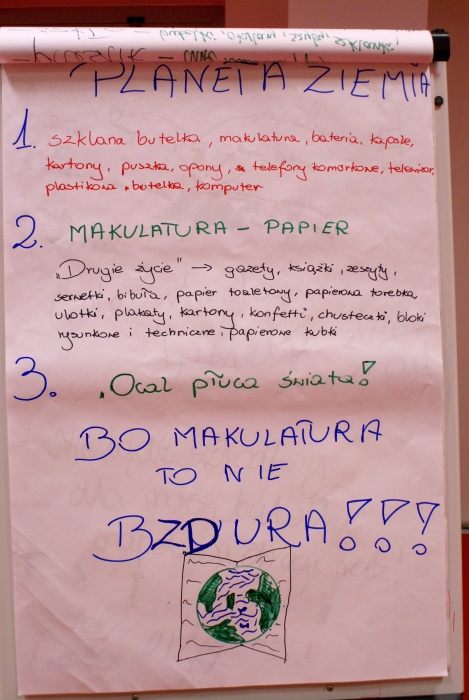 butelki, szklanki,
PLANETA ZIEMIA
1. szklana butelka, makulatura, bateria, kapsle,
kartony, puszka, opony, telefony komórkowe, telewizor,
plastikowa butelka, komputer
2. MAKULATURA – PAPIER
„Drugie życie” → gazety, książki, zeszyty,
serwetki, bibuła, papier toaletowy, papierowa torebka,
ulotki, plakaty, kartony, konfetti, chusteczki, bloki
rysunkowe i techniczne, papierowe kubki
3. „Ocal płuca świata!
BO MAKULATURA
TO NIE
BZDURA!!!